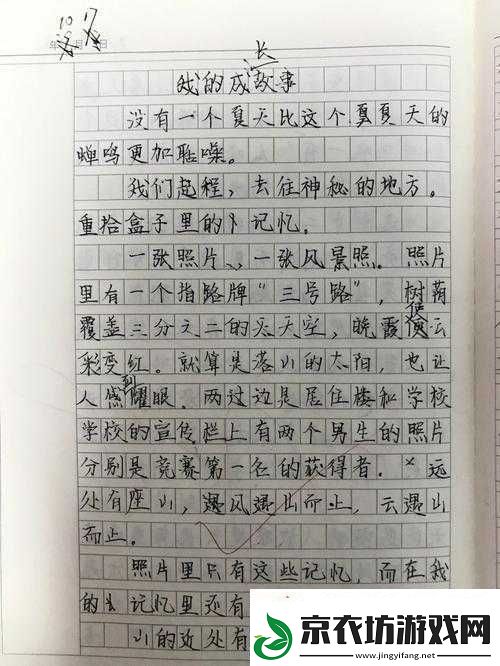 10 7
年 月 日
我的成长故事
没有一个夏天比这个夏夏天的
蝉鸣更加聒噪。
我们起程，去往神秘的地方。
重拾盒子里的记忆。
一张照片，一张风景照。照片
里有一个指路牌“三号路”，树荫
覆盖三分之二的天空，晚霞使云
彩变红。就算是落山的太阳，也让
人感到耀眼。两边是居住楼和学校
学校的宣传栏上有两个男生的照片
分别是竞赛第一名的获得者。远
处有座山，遇风遇山而止，云遇山
而止。
照片里只有这些记忆，而在我
的记忆里还有
山的近处有
京农坊游戏网
www.jingyifang.net